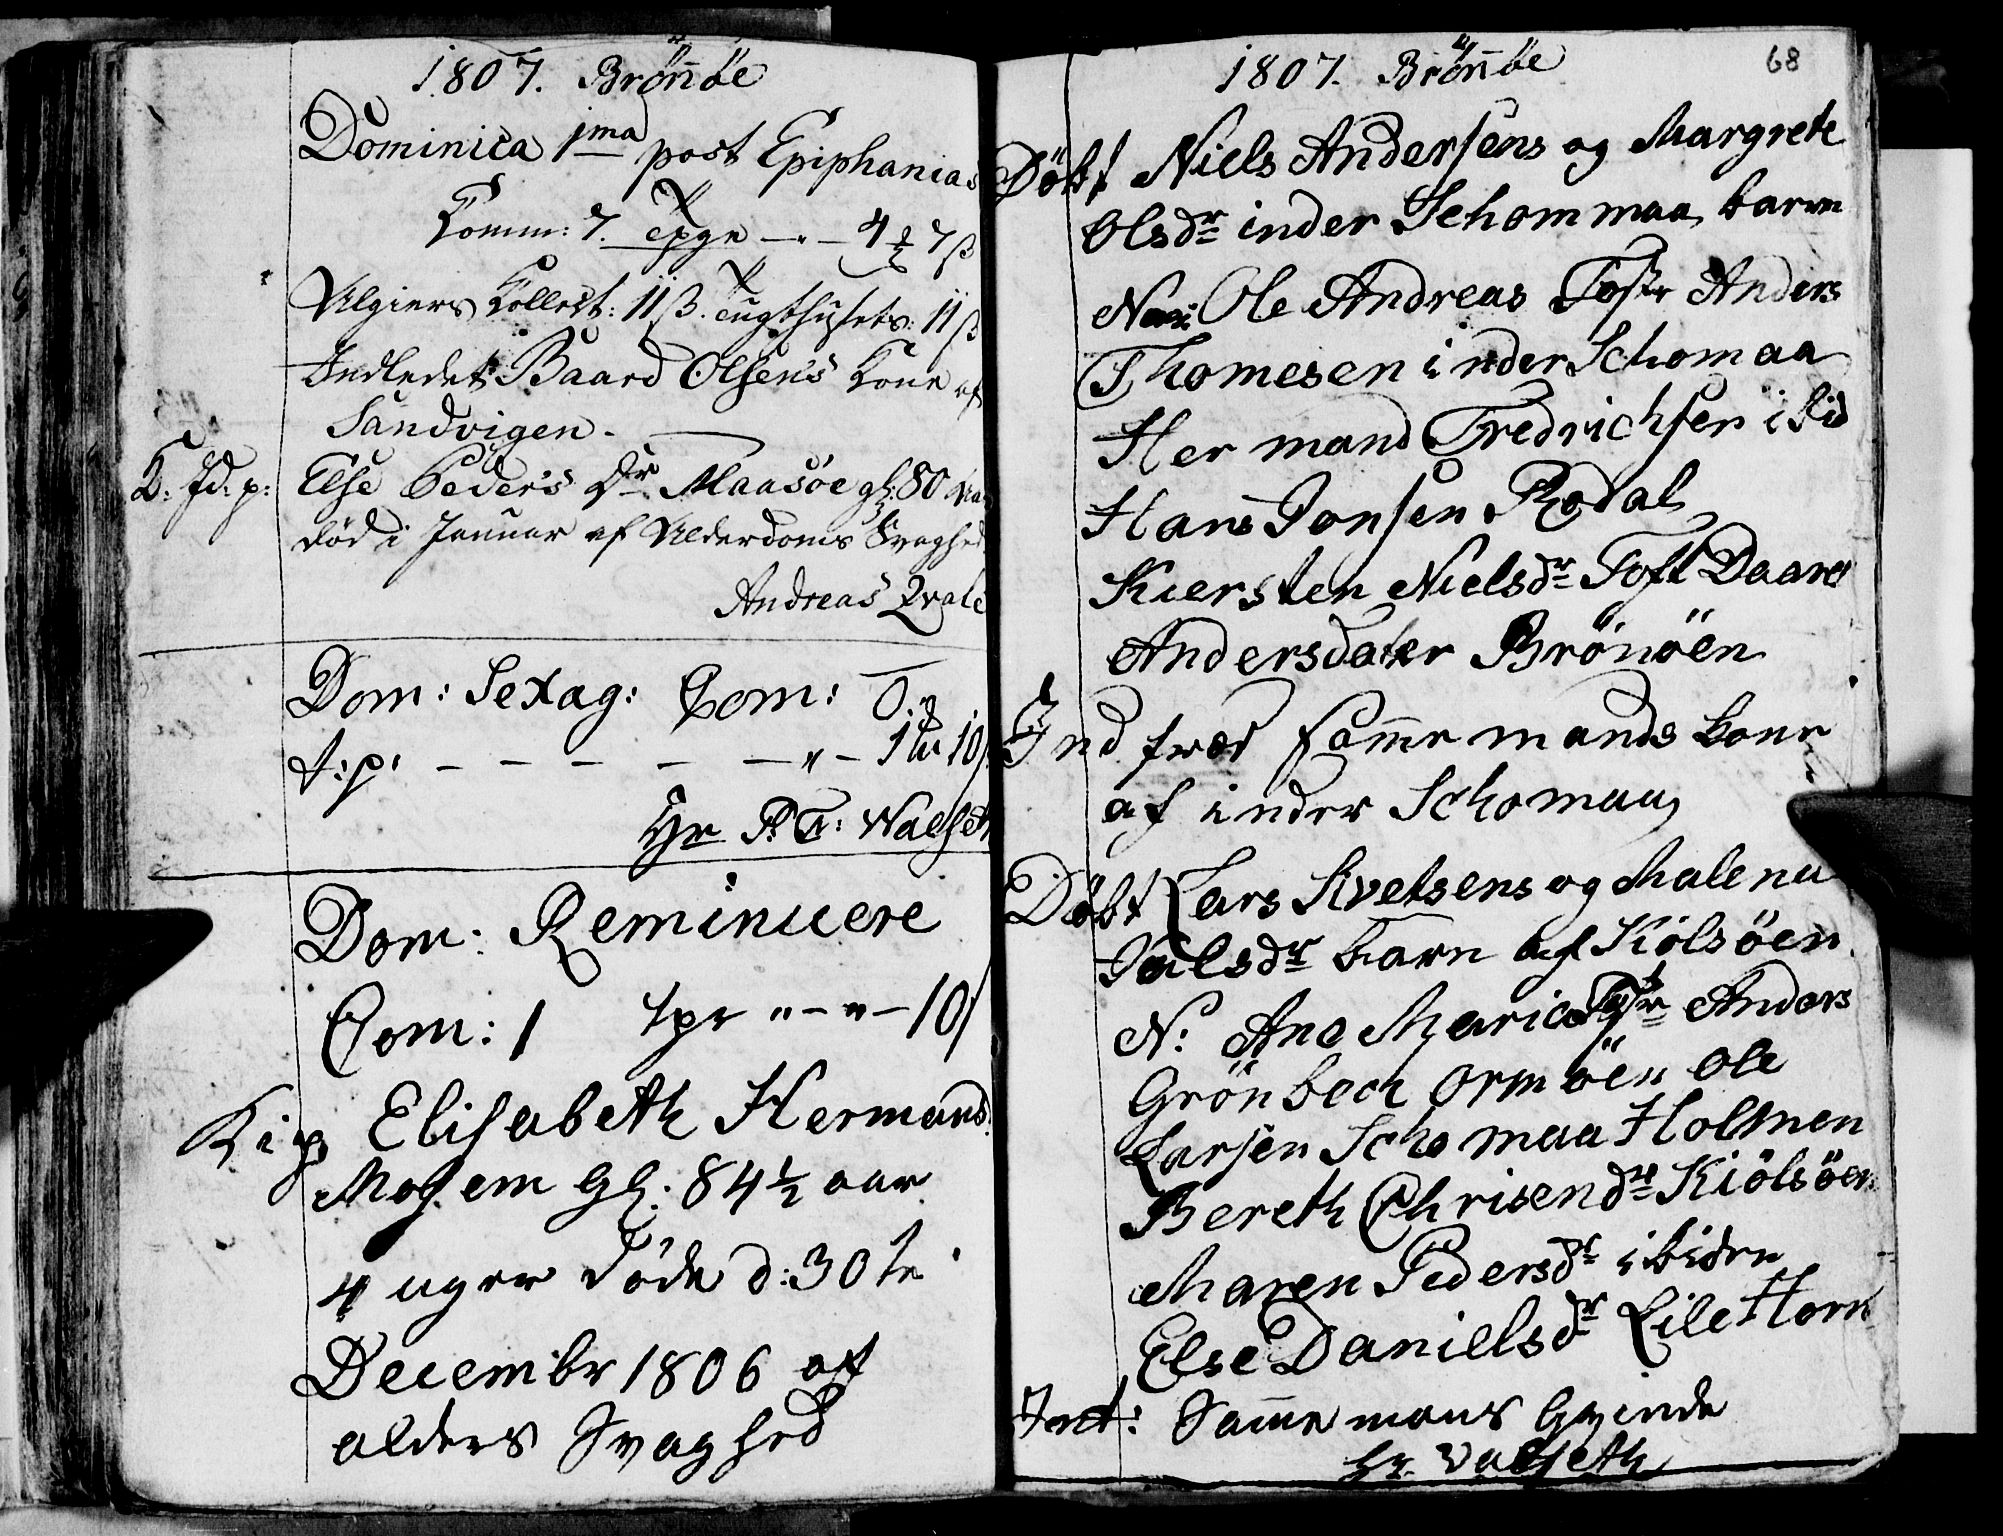 1807. Brönöe
Dominica 1ma post Epiphanias
Komm: 7.
Algiers Kollect: 11 ß. Tugthusets: 11 ß
Indledet Baard Olsens Kone af
Sandvigen.
K: Jd: p: Else Peders Dr Maasöe gl: 80 Aar
död i Januar af Alderdoms Svaghed
Andreas Qvale
Dom: Sexag: Com: 0
t:p: — — — — — " — 1 10
Hr P. T: Walseth
Dom: Reminiscere
Com: 1 " — " — 10
K i p Elisabeth Hermands
Mosem gl: 84 1/2 aar
4 uger döde d: 30te
Decembr 1806 af
alders Svaghed
1807. Brönöe 68
Döbt Niels Andersens og Margrete
Olsdr inder Schommaa barn
Nan: Ole Andreas Fostr Anders
Thomesen inder Schomaa
Hermand Fredrichsen ibid
Hans Jonsen Rodal
Kiersten Nielsdr Toft Daare
Andersdater Brönöen
Ind træd samme mands kone
af inder Schomaa
Döbt Lars Kvetsens og Malena
Palsdr barn af Kiölsöen
N: Ane Maria Fostr Anders
Grönbech Ormöen Ole
Larsen Schomaa Holmen
Bereth Chrisendr Kiölsöen
Maren Pedersdr ibiden
Else Danielsdr Lile Horn
Int: Samme mans qvinde
Hr. Valseth